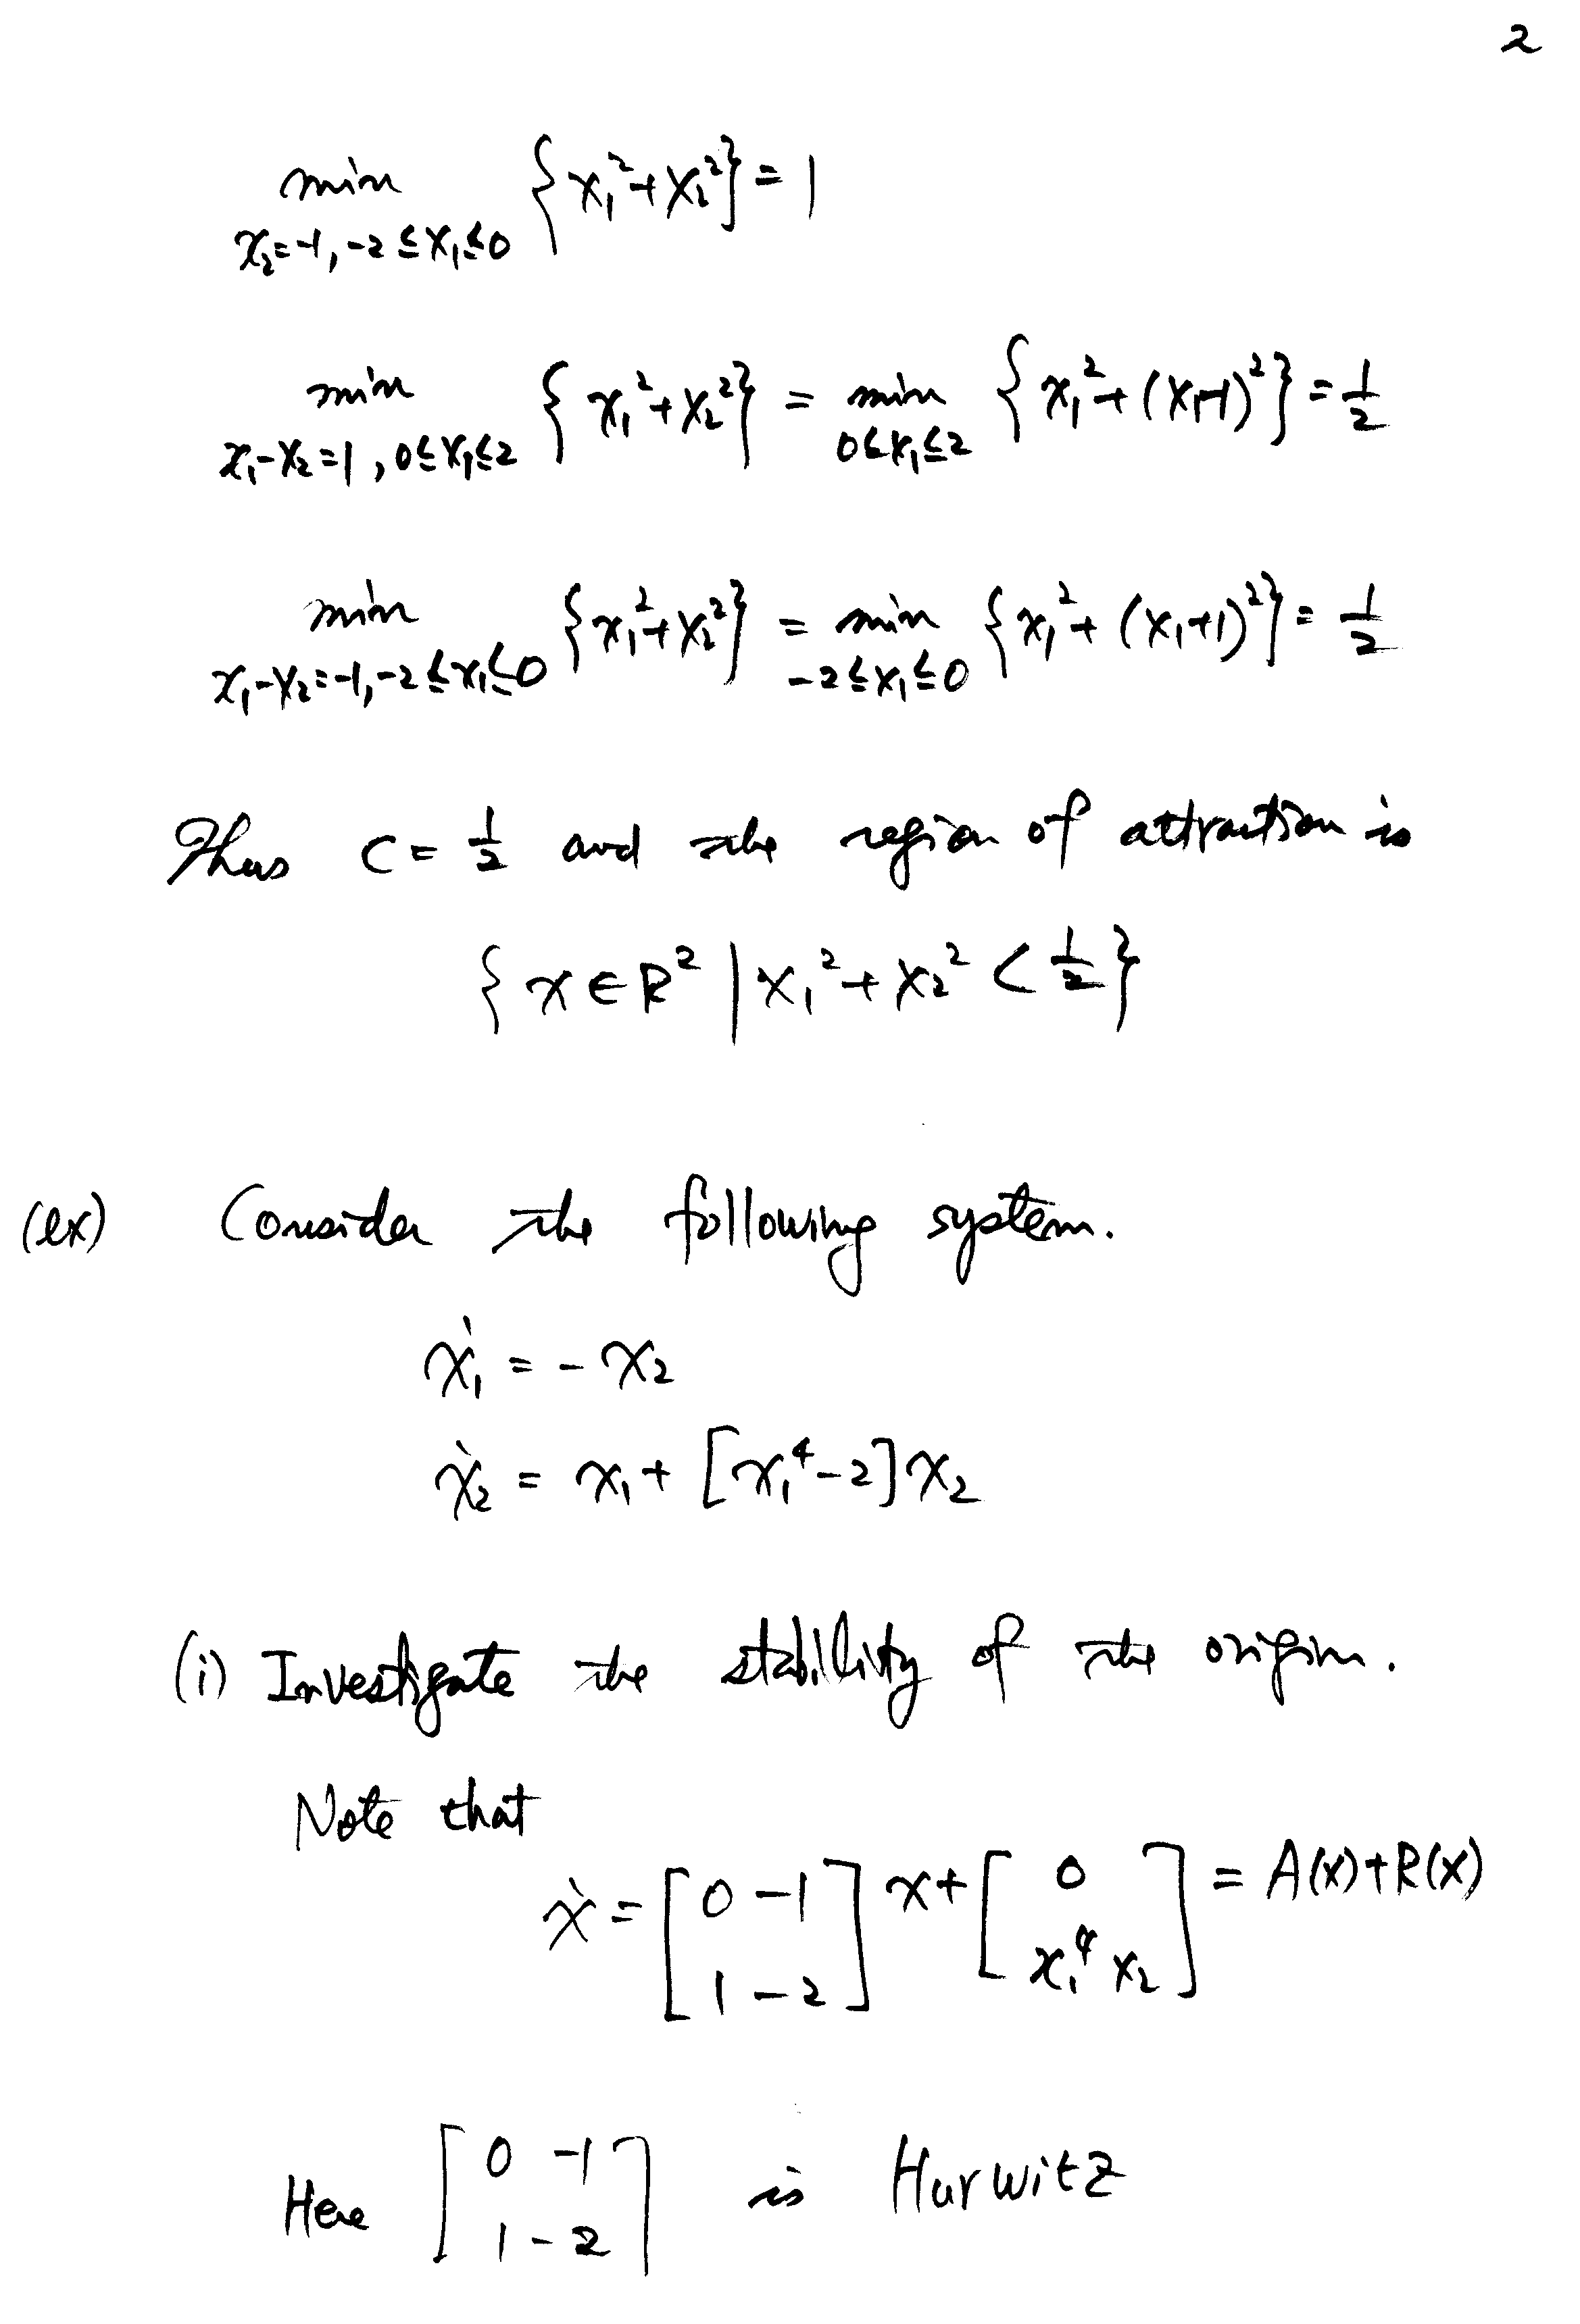 2
min {x₁²+x₂²} = 1
x₂=-1, -2≤x₁≤0
min {x₁²+x₂²} = min {x₁²+(x₁-1)²} = 1/2
x₁-x₂=1, 0≤x₁≤2 0≤x₁≤2
min {x₁²+x₂²} = min {x₁²+(x₁+1)²} = 1/2
x₁-x₂=-1, -2≤x₁≤0 -2≤x₁≤0
Thus C = 1/2 and the region of attraction is
{x ∈ R² | x₁²+x₂² < 1/2}
(ex) Consider the following system.
ẋ₁ = -x₂
ẋ₂ = x₁ + [x₁⁴-2]x₂
(i) Investigate the stability of the origin.
Note that
ẋ = [0 -1; 1 -2] x + [0; x₁⁴x₂] = A(x)+R(x)
Here [0 -1; 1 -2] is Hurwitz